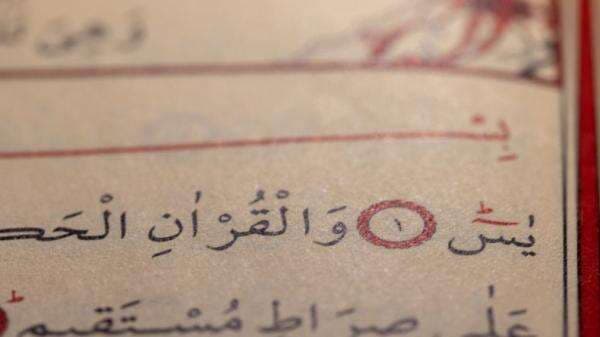 بِسْـ
يٰسٓ ١ وَالْقُرْاٰنِ الْحَكـ
عَلٰى صِرَاطٍ مُسْتَقِيمٍ